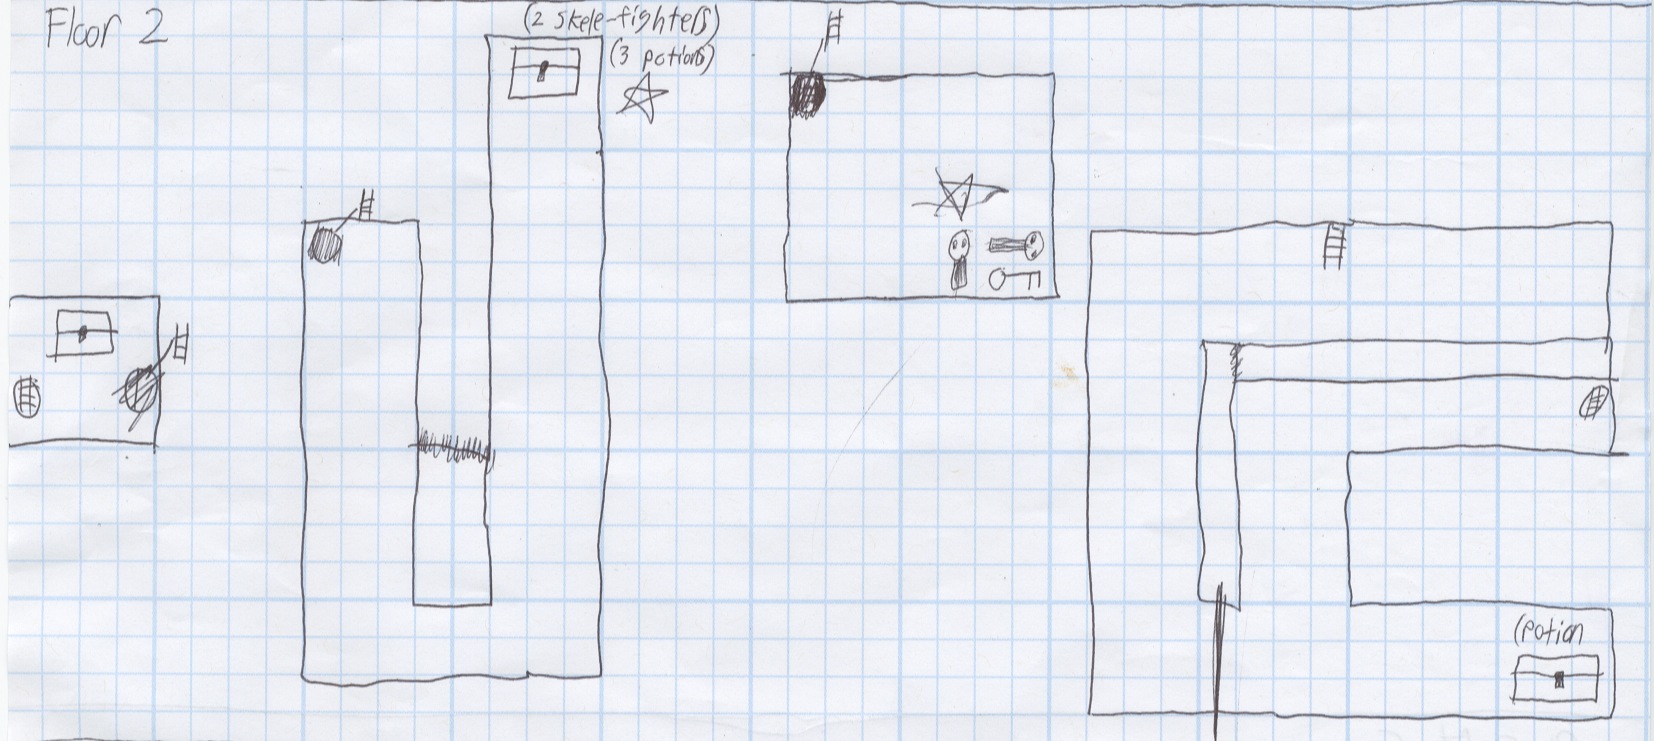 Floor 2
(2 skele-fighters)
(3 potions)
(potion